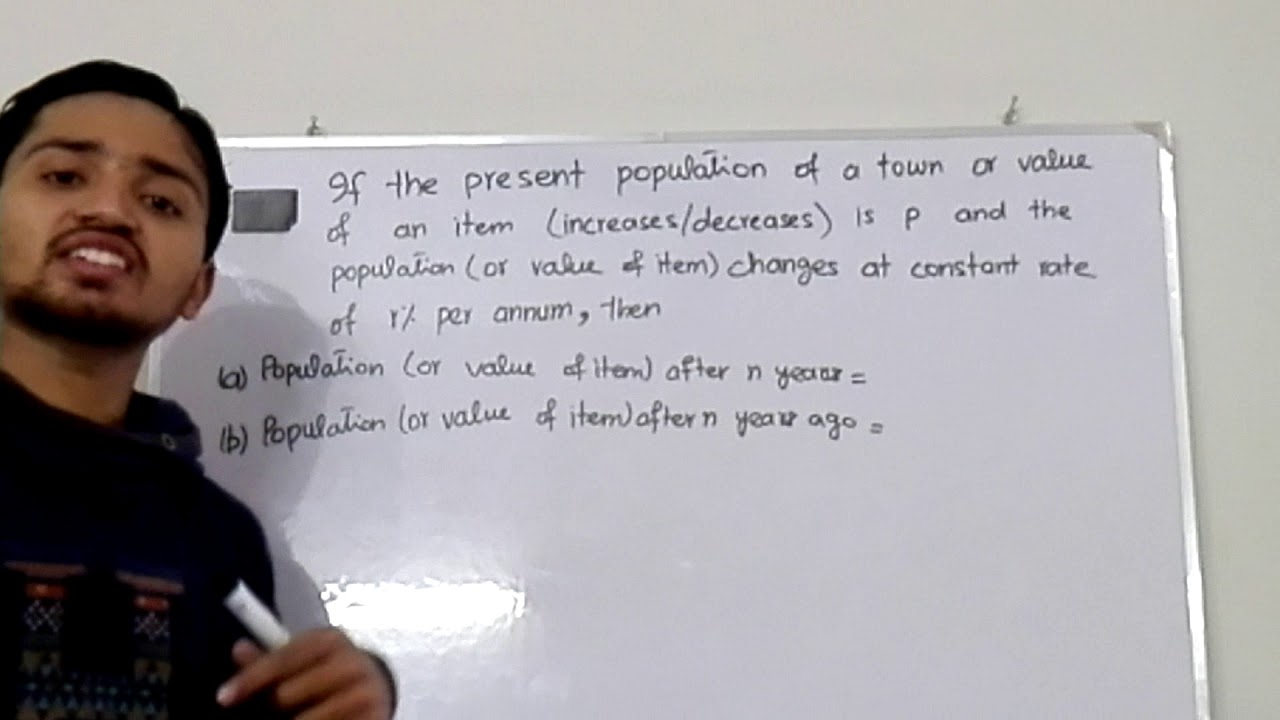 If the present population of a town or value
of an item (increases/decreases) is P and the
population (or value of item) changes at constant rate
of r% per annum, then
(a) Population (or value of item) after n years =
(b) Population (or value of item) after n years ago =